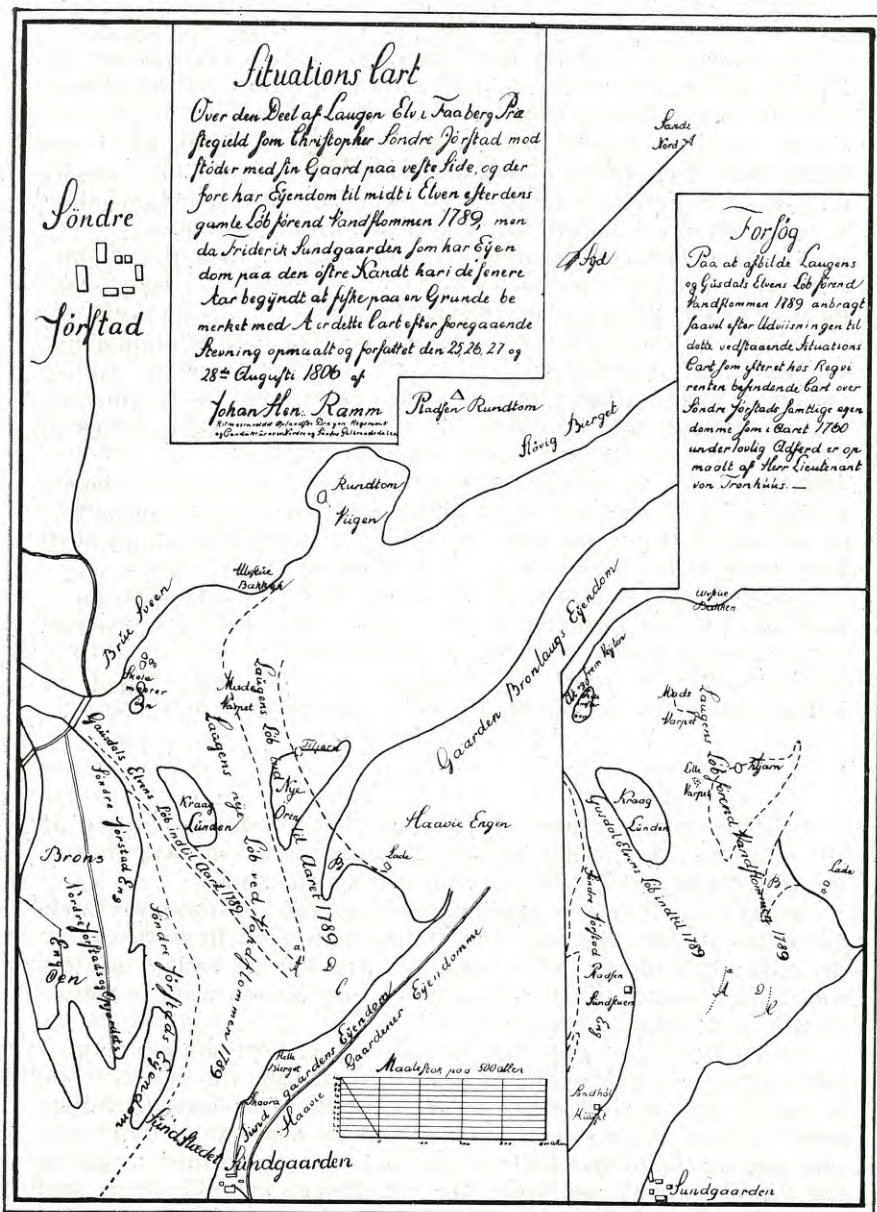 Situations Cart
Over den Deel af Laugen Elv i Faaberg Præ
stegield som Christopher Söndre Jörstad mod
stöder med sin Gaard paa veste Side, og der
fore har Eyendom til midt i Elven efter dens
gamle Löb förend Vandflommen 1789, men
da Friderik Sundgaarden som har Eyen
dom paa den östre Kandt har i de senere
Aar begyndt at fiske paa en Grunde be
merket med A er dette Cart efter foregaaende
Stevning opmaalt og forfattet den 25, 26, 27 og
28de Augusti 1806 af
Johan Hen: Ramm
Söndre
Jörstad
Sande
Nord
Syd
Forsög
Paa at afbilde Laugens
og Gusdals Elvens Löb förend
Vandflommen 1789 anbragt
saavel efter Udviisningen til
dette vedstaaende Situations
Cart som efter et hos Reqvi
renten befindende Cart over
Söndre Jörstads samtlige eyen
domme som i Aaret 1760
under lovlig Adferd er op
maalt af Herr Lieutenant
von Tronhuus. —
Pladsen Rundtom
Rundtom
Viigen
Slövig Bierget
Brüe Sveen
Bakken
Gaarden Bronlaugs Eyendom
Mads
Varpet
Laugens Löb ind til Aaret 1789
Nye
Ören
Laugens nye Löb ved Vandflommen 1789
Kraag
Lünden
Elvens Löb indtil Aaret 1789
Söndre Jörstad Eng
Brons
Engen
Haavie Engen
B
Lade
A
D
C
Söndre Jörstads Eyendom
Sundstadet
Helle
Bierget
Skaara
Sundgaardens Eyendom
Haavie Gaardenes Eyendomme
Sundgaarden
Maalestok paa 500 allen
Bakken
Mads
Varpet
Lille
Varpet
Tjærn
Laugens Löb förend Vandflommen 1789
Kraag
Lünden
Gusdal Elvens Löb indtil 1789
Söndre Jörstad Eng
Pladsen
Sandstuen
B
Lade
A
D
Sundgaarden